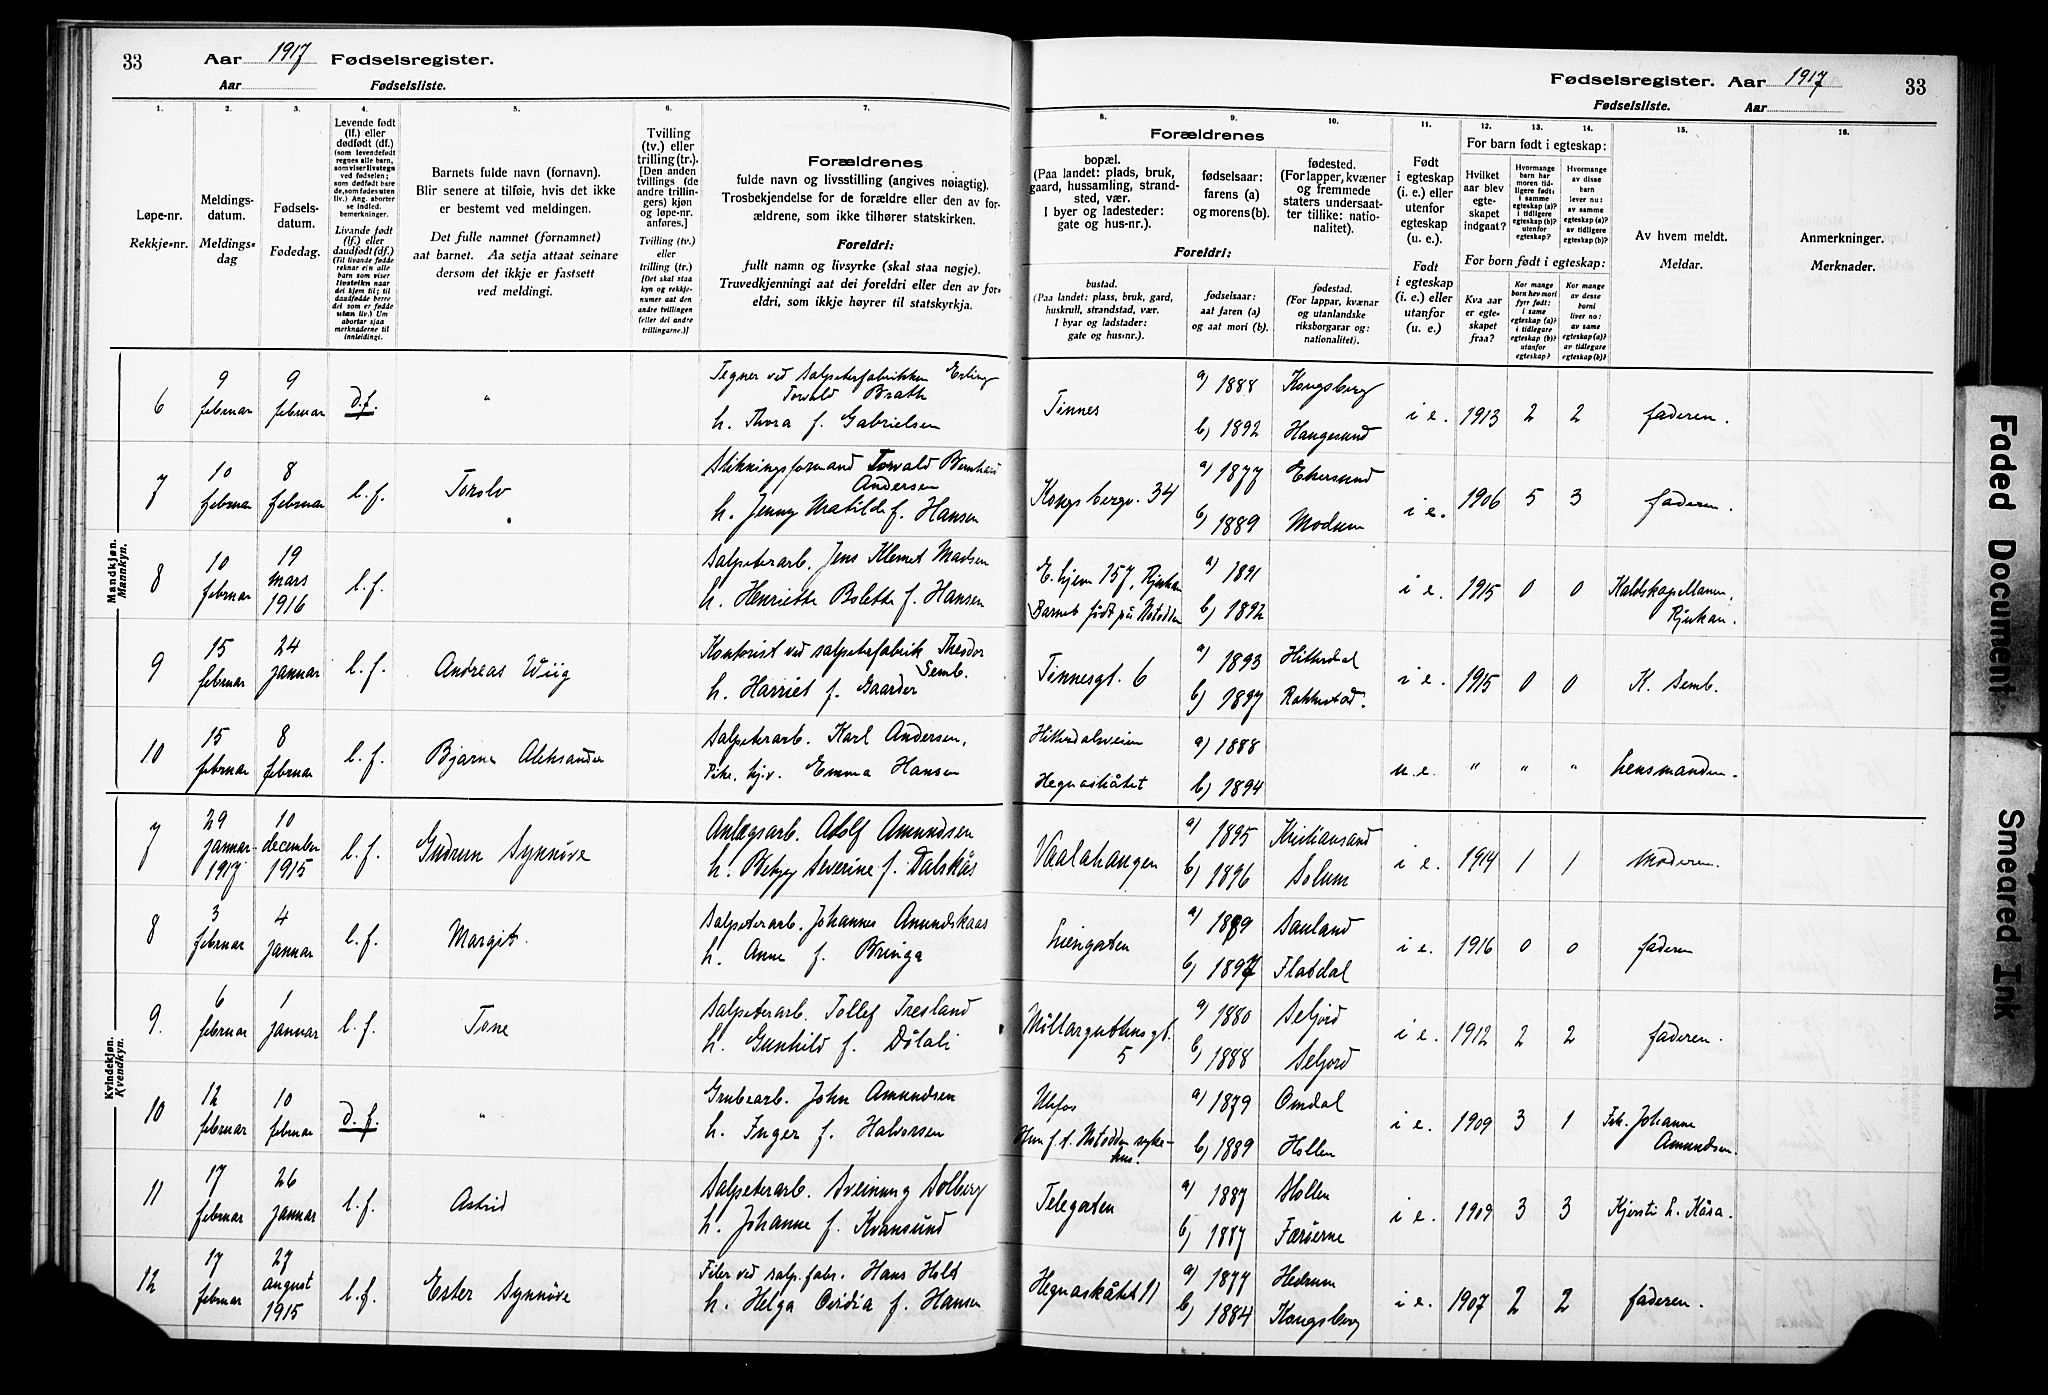 33 Aar 1917 Fødselsregister.
Aar Fødselsliste.
Fødselsregister. Aar 1917 33
Fødselsliste. Aar
1. 2. 3. 4. 5. 6. 7.
8. 9. 10. 11. 12. 13. 14. 15. 16.
Løpe-nr.
Rekkje-nr.
Meldings-
datum.
Meldings-
dag
Fødsels-
datum.
Fødedag.
Levende født
(lf.) eller
dødfødt (df.)
(som levendefødt
regnes alle barn,
som viser livstegn
ved fødselen;
som dødfødt bare
de, som fødes uten
liv.) Ang. aborter
se indled.
bemerkninger.
Livande født
(lf.) eller
daudfødt (df.)
(Til livande fødde
reknar ein alle
born som viser
livsteikn naar
dei kjem til; til
daudfødde berre
dei som er fødde
utan liv.) Um
abortar sjaa
merknaderne til
innleidingi.
Barnets fulde navn (fornavn).
Blir senere at tilføie, hvis det ikke
er bestemt ved meldingen.
Det fulle namnet (fornamnet)
aat barnet. Aa setja attaat seinare
dersom det ikkje er fastsett
ved meldingi.
Tvilling
(tv.) eller
trilling (tr.).
[Den anden
tvillings (de
andre trillin-
gers) kjøn
og løpe-nr.
anføres.]
Tvilling (tv.)
eller
trilling (tr.)
[Det skal staa
kyn og rekkje-
numer aat den
andre tvillingen
(eller dei andre
trillingarne.)]
Forældrenes
fulde navn og livsstilling (angives nøiagtig).
Trosbekjendelse for de forældre eller den av for-
ældrene, som ikke tilhører statskirken.
Foreldri:
fullt namn og livsyrke (skal staa nøgje).
Truvedkjenningi aat dei foreldri eller den av for-
eldri, som ikkje høyrer til statskyrkja.
Forældrenes
bopæl.
(Paa landet: plads, bruk,
gaard, hussamling, strand-
sted, vær.
I byer og ladesteder:
gate og hus-nr.).
fødselsaar:
farens (a)
og morens (b).
fødested.
(For lapper, kvæner
og fremmede
staters undersaat-
ter tillike: natio-
nalitet).
Foreldri:
bustad.
(Paa landet: plass, bruk, gard,
huskrull, strandstad, vær.
I byar og ladstader:
gate og hus-nr.).
fødselsaar:
aat faren (a)
og aat mori (b).
fødestad.
(For lappar, kvænar
og utanlandske
riksborgarar og:
nationalitet).
Født
i egteskap
(i. e.) eller
utenfor
egteskap
(u. e.).
Født
i egteskap
(i. e.) eller
utanfor
egteskap
(u. e.).
For barn født i egteskap:
Hvilket
aar blev
egte-
skapet
indgaat?
Hvormange
barn har
moren tid-
ligere født:
i samme
egteskap (a)?
i tidligere
egteskap (b)?
utenfor
egteskap?
Hvormange
av disse
barn
lever nu:
av samme
egteskap (a)?
av tidligere
egteskap (b)?
For born født i egteskap:
Kva aar
er egte-
skapet
fraa?
Kor mange
born hev mori
fyrr født:
i same
egteskap (a)?
i tidlegare
egteskap (b)?
utanfor
egteskap?
Kor mange
av desse
borni
liver no:
av same
egteskap (a)?
av tidlegare
egteskap (b)?
Av hvem meldt.
Meldar.
Anmerkninger.
Merknader.
Mandkjøn.
Mannkyn.
6 9 februar 9 februar d.f. " Tegner ved salpeterfabrikken Erling
Torvald Brath
h. Thora f. Gabrielsen
Tinnes a) 1888 Kongsberg i e. 1913 2 2 faderen.
b) 1892 Haugesund
7 10 februar 8 februar l.f. Torolv Stikningsformand Torvald Bernhard
Andersen
h. Jenny Matilde f. Hansen
Kongsbergv. 34 a) 1877 Ekersund i e. 1906 5 3 faderen.
b) 1889 Modum
8 10 februar 19 mars 1916 l.f. Salpeterarb. Jens Klemet Madsen
h. Henriette Bolette f. Hansen
E. hjem 157, Rjukan a) 1891 i e. 1915 0 0 Kaldskapellanen,
Barnet født på Notodden b) 1892 Rjukan.
9 15 februar 24 januar l.f. Andreas Wiig Kontorist ved salpeterfabrik Theodor
Semb.
h. Harriet f. Gaarder
Tinnesgt. 6 a) 1893 Hitterdal i e. 1915 0 0 K. Semb.
b) 1897 Rakkestad.
10 15 februar 8 februar l.f. Bjarne Aleksander Salpeterarb. Karl Andersen,
Pike, hj.v. Emma Hansen
Hitterdalsveien a) 1888 u. e. " " " Lensmanden.
Hegnaskåtet b) 1894
Kvindekjøn.
Kvendkyn.
7 29 januar 1917 10 december 1915 l.f. Gudrun Synnøve Anlægsarb. Adolf Amundsen
h. Betzy Severine f. Dalskås
Vaalahaugen a) 1895 Kristiansand i e. 1914 1 1 Moderen.
b) 1896 Solum
8 3 februar 4 januar l.f. Margit. Salpeterarb. Johannes Amundskaas
h. Anne f. Bringa
Liengaten a) 1889 Sauland i e. 1916 0 0 faderen
b) 1897 Flatdal
9. 6 februar 1 januar l.f. Tone Salpeterarb. Tollef Tresland
h. Gunhild f. Dölali
Möllargutensgt. a) 1880 Seljord i e. 1912 2 2 faderen.
5 b) 1888 Seljord
10 12 februar 10 februar d.f. " Grubearb. John Amundsen
h. Inger f. Halvorsen
Ulefos a) 1879 Omdal i e. 1909 3 1 Frk. Johanne
Hun f. t. Notodden syke- b) 1889 Hollen Amundsen.
hus.
11 17 februar 26 januar l.f. Astrid Salpeterarb. Sveinung Solberg
h. Johanne f. Kvansund
Telegaten a) 1887 Hollen i e. 1909 3 3 Kjersti L. Kåsa.
b) 1887 Færöerne
12 17 februar 27 august 1915 l.f. Ester Synnöve Filer ved salp.fabr. Hans Holt
h. Helga Ovidia f. Hansen
Hegnaskåtet 11 a) 1877 Hedrum i e. 1907 2 2 faderen.
b) 1884 Kongsberg
Faded Document
Smeared Ink